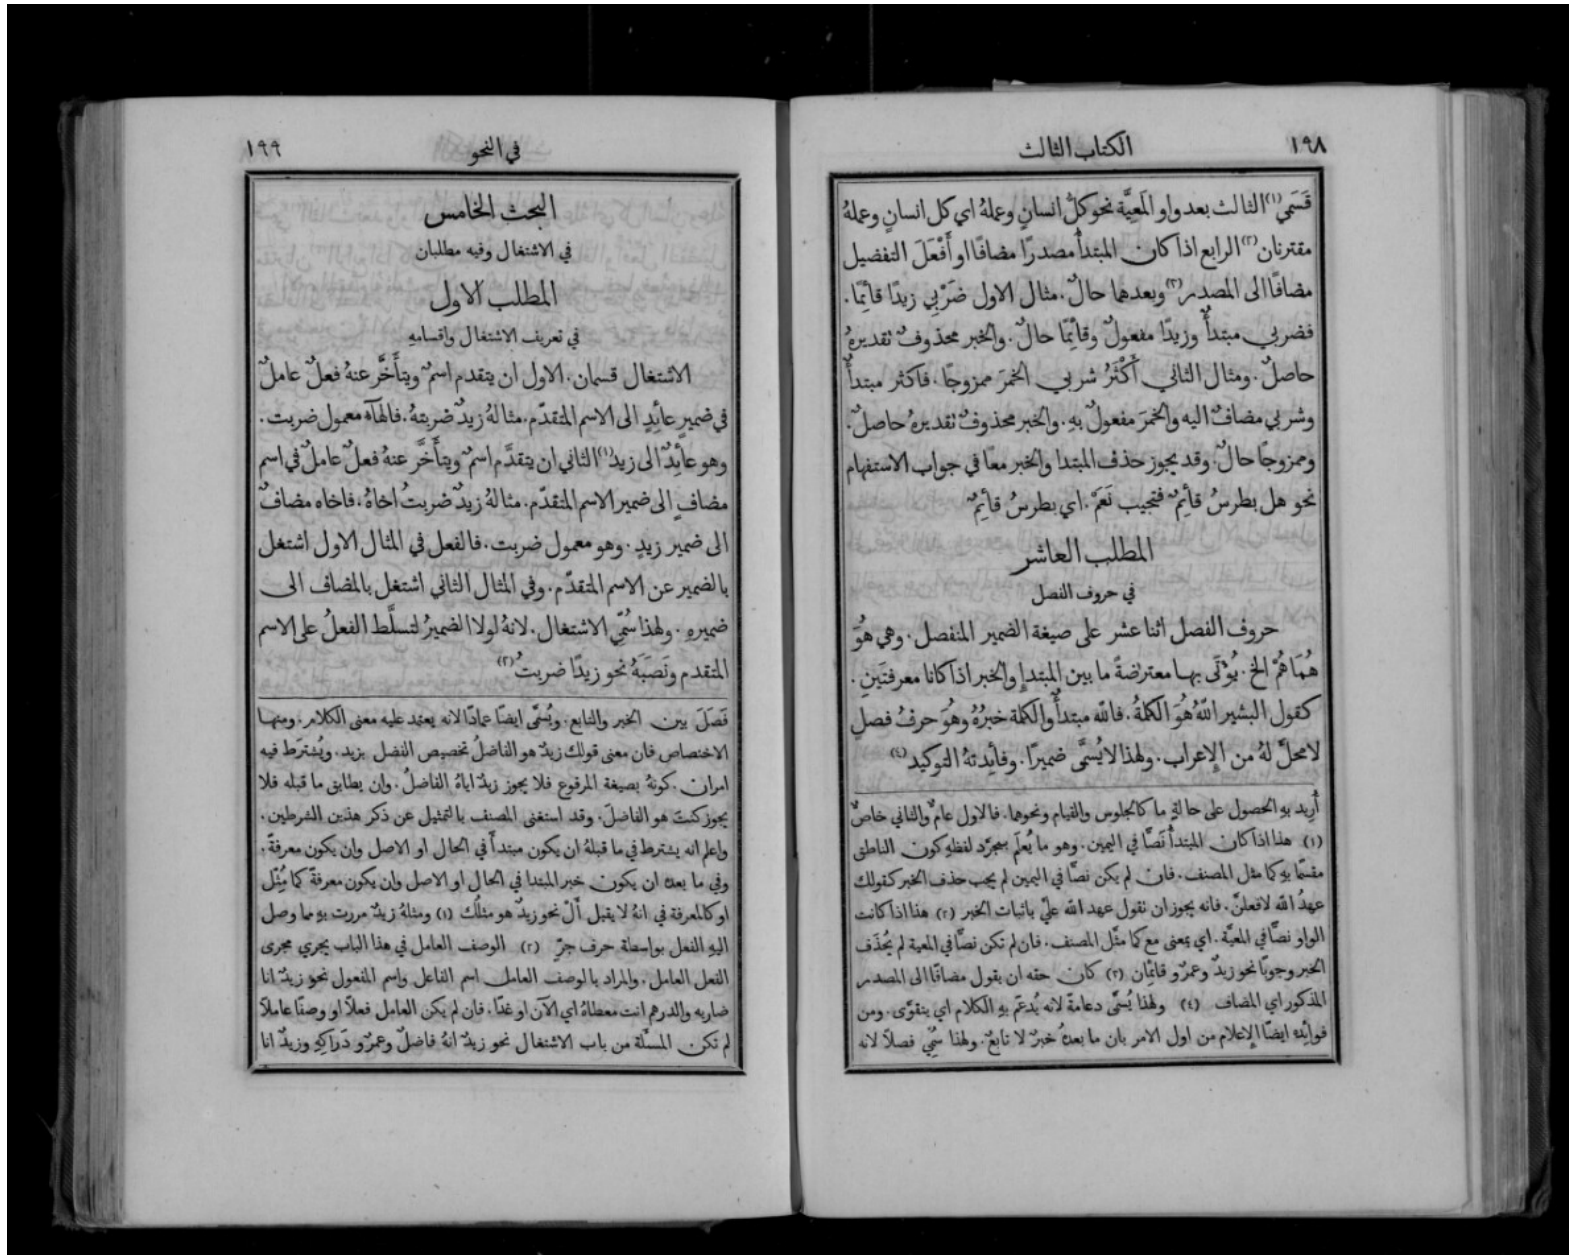 ١٩٨
الكتاب الثالث
قَسَمي (١) الثالث بعد واو المَعيَّة نحو كلُّ انسانٍ وعملهُ اي كل انسانٍ وعملهُ
مقترنان (٢) الرابع اذا كان المبتدأُ مصدرًا مضافًا او أَفْعَلَ التفضيل
مضافًا الى المصدر (٣) وبعدهما حالٌ. مثال الاول ضَرْبي زيدًا قائِمًا.
فضربي مبتدأٌ وزيدًا مفعولٌ وقائِمًا حالٌ. والخبر محذوفٌ تقديرهُ
حاصلٌ. ومثال الثاني أَكْثَرُ شربي الخمرَ ممزوجًا. فاكثر مبتدأٌ
وشربي مضافٌ اليه والخمرَ مفعولٌ بهِ. والخبر محذوفٌ تقديرهُ حاصلٌ.
وممزوجًا حالٌ. وقد يجوز حذف المبتدا والخبر معًا في جواب الاستفهام
نحو هل بطرسُ قائِمٌ فتجيب نَعَمْ. اي بطرسُ قائِمٌ
المطلب العاشر
في حروف الفصل
حروف الفصل اثنا عشر على صيغة الضمير المنفصل. وهي هُوَ
هُمَا هُمْ الخ. يُؤْتَى بها معترضةً ما بين المبتدإِ والخبر اذا كانا معرفتَينِ.
كقول البشير اللهُ هُوَ الكلمةُ. فالله مبتدأٌ والكلمة خبرُهُ وهُوَ حرفُ فصلٍ
لا محلَّ لهُ من الإِعراب. ولهذا لا يُسمَّى ضميرًا. وفائِدتهُ التوكيد (٤)
أُريد بهِ الحصول على حالةٍ ما كالجلوس والقيام ونحوهما. فالاول عامٌّ والثاني خاصٌّ
(١) هذا اذا كان المبتدأُ نَصًّا في اليمين. وهو ما يُعلَم بمجرَّد لفظهِ كون الناطق
مقسمًا بهِ كما مثل المصنف. فان لم يكن نصًّا في اليمين لم يجب حذف الخبر كقولك
عهدُ الله لافعلنَّ. فانه يجوز ان تقول عهد الله عليَّ باثبات الخبر (٢) هذا اذا كانت
الواو نصًّا في المعيَّة. اي بمعنى مع كما مثَّل المصنف. فان لم تكن نصًّا في المعية لم يُحذَف
الخبر وجوبًا نحو زيدٌ وعمرٌو قائِمَان (٣) كان حقه ان يقول مضافًا الى المصدر
المذكور اي المضاف (٤) ولهذا يُسمَّى دعامةً لانه يُدعَم بهِ الكلام اي يتقوَّى. ومن
فوائِده ايضًا الإِعلام من اول الامر بان ما بعدهُ خبرٌ لا تابعٌ. ولهذا سُمِّي فصلًا لانه
في النحو
١٩٩
البحث الخامس
في الاشتغال وفيه مطلبان
المطلب الاول
في تعريف الاشتغال واقسامهِ
الاشتغال قسمان. الاول ان يتقدم اسمٌ ويتأَخَّر عنهُ فعلٌ عاملٌ
في ضميرٍ عائِدٍ الى الاسم المتقدّم. مثالهُ زيدٌ ضربتهُ. فالهآء معمول ضربت.
وهو عائِدٌ الى زيد (١) الثاني ان يتقدَّم اسمٌ ويتأَخَّر عنهُ فعلٌ عاملٌ في اسم
مضافٍ الى ضمير الاسم المتقدّم. مثالهُ زيدٌ ضربتُ اخاهُ. فاخاه مضافٌ
الى ضمير زيدٍ. وهو معمول ضربت. فالفعل في المثال الاول اشتغل
بالضمير عن الاسم المتقدّم. وفي المثال الثاني اشتغل بالمضاف الى
ضميرهِ. ولهذا سُمِّي الاشتغال. لانهُ لولا الضميرُ لتسلَّط الفعلُ على الاسم
المتقدم ونَصَبَهُ نحو زيدًا ضربتُ (٢)
فَصَلَ بين الخبر والتابع. ويُسمَّى ايضًا عمادًا لانه يعتمد عليه معنى الكلام. ومنها
الاختصاص فان معنى قولك زيدٌ هو الفاضلُ تخصيص الفضل بزيد. ويُشترَط فيه
امران. كونهُ بصيغة المرفوع فلا يجوز زيدٌ اياهُ الفاضلُ. وان يطابق ما قبله فلا
يجوز كنتَ هو الفاضلَ. وقد استغنى المصنف بالتمثيل عن ذكر هذين الشرطين.
واعلم انه يشترط في ما قبلهُ ان يكون مبتدأً في الحال او الاصل وان يكون معرفةً.
وفي ما بعده ان يكون خبر المبتدا في الحال او الاصل وان يكون معرفةً كما مُثِّل
او كالمعرفة في انهُ لا يقبل أَلْ نحو زيدٌ هو مثلُك (١) ومثلهُ زيدٌ مررت بهِ مما وصل
اليهِ الفعل بواسطة حرف جرٍّ (٢) الوصف العامل في هذا الباب يجري مجرى
الفعل العامل. والمراد بالوصف العامل اسم الفاعل واسم المفعول نحو زيدٌ انا
ضاربه والدرهم انت معطاهُ اي الآن او غدًا. فان لم يكن العامل فعلًا او وصفًا عاملًا
لم تكن المسئَلة من باب الاشتغال نحو زيدٌ انهُ فاضلٌ وعمرٌو دَرَاكِهِ وزيدٌ انا